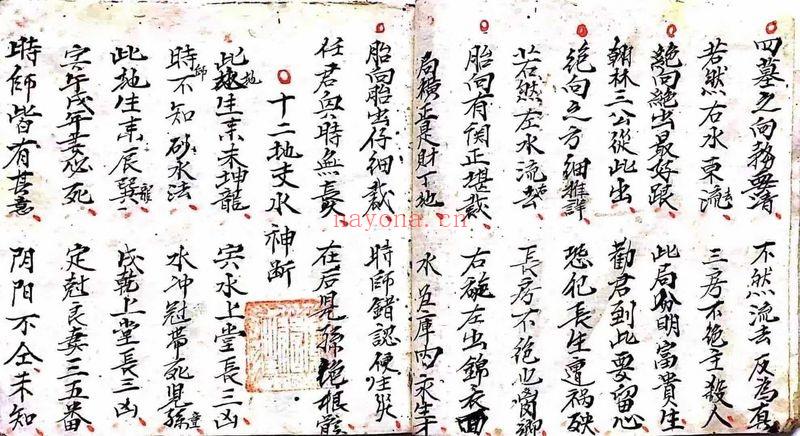 四墓之向務要清 不然流去反為真
若然右水東流去 三房不絕主殺人
絕向絕出最好跟 此局分明富貴生
翰林三公從此出 勸君到此要留心
絕向之方細推詳 恐犯長生遭禍殃
若然左水流右去 長房不絕也

胎向有関正堪裁 右旋左出錦衣
局橫正是財丁地 水 庫內永生才
胎向胎出仔細裁 時師錯認便生災
任君興時無長久 在后兒孫絕根
十二地支水神断
此地生来未坤龍 水上堂長三凶
時師不知砂水法 水冲冠帶死兒孫童
此地生来辰巽龍 戌乾上堂長三凶
寅午戌年妻必死 定尅良妻三五番
時師皆有甚意 阴阳不仝未知
nayona.cn